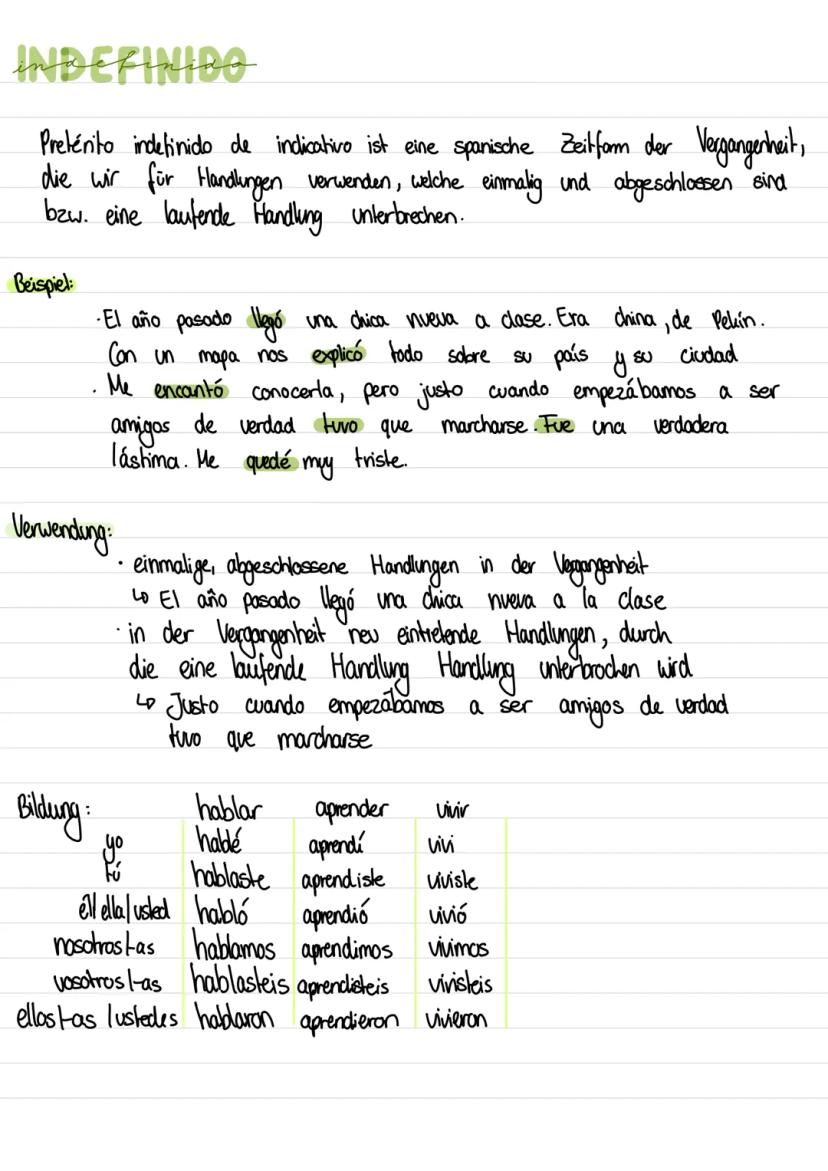 INDEFINIDO
indefinido
Pretérito indefinido de indicativo ist eine spanische Zeitform der Vergangenheit,
die wir für Handlungen verwenden, welche einmalig und abgeschlossen sind
bzw. eine laufende Handlung unterbrechen.
Beispiel:
· El año pasado llegó una chica nueva a clase. Era china, de Pekín.
Con un mapa nos explicó todo sobre su país y su ciudad
· Me encantó conocerla, pero justo cuando empezábamos a ser
amigos de verdad tuvo que marcharse. Fue una verdadera
lástima. Me quedé muy triste.
Verwendung:
· einmalige, abgeschlossene Handlungen in der Vergangenheit
↳ El año pasado llegó una chica nueva a la clase
· in der Vergangenheit neu eintretende Handlungen, durch
die eine laufende Handlung Handlung unterbrochen wird
↳ Justo cuando empezábamos a ser amigos de verdad
tuvo que marcharse
Bildung: hablar aprender vivir
yo hablé aprendí viví
tú hablaste aprendiste viviste
él/ella/usted habló aprendió vivió
nosotros/-as hablamos aprendimos vivimos
vosotros/-as hablasteis aprendisteis vivisteis
ellos/-as/ustedes hablaron aprendieron vivieron